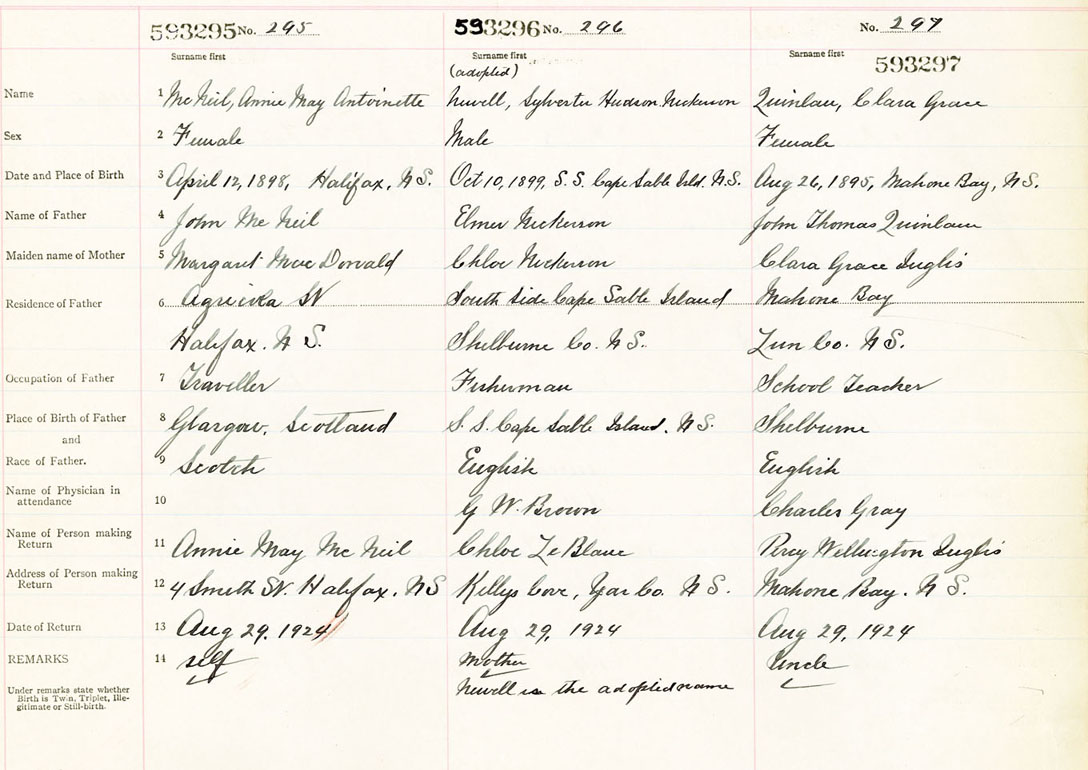 593295 No. 295 593296 No. 296 No. 297
Surname first Surname first Surname first 593297
(adopted)
Name 1 McNeil, Annie May Antoinette Newell, Sylvester Hudson Nickerson Quinlan, Clara Grace
Sex 2 Female Male Female
Date and Place of Birth 3 April 12, 1898, Halifax, N.S. Oct 10, 1899, S.S. Cape Sable Isld. N.S. Aug 26, 1895, Mahone Bay, N.S.
Name of Father 4 John McNeil Elmer Nickerson John Thomas Quinlan
Maiden name of Mother 5 Margaret MacDonald Chloe Nickerson Clara Grace Inglis
Residence of Father 6 Agricola St South Side Cape Sable Island Mahone Bay
Halifax. N S. Shelburne Co. N S. Lun Co. N S.
Occupation of Father 7 Traveller Fisherman School Teacher
Place of Birth of Father 8 Glasgow, Scotland S. S. Cape Sable Island. N S. Shelburne
and
Race of Father. 9 Scotch English English
Name of Physician in
attendance 10 G W. Brown Charles Gray
Name of Person making
Return 11 Annie May McNeil Chloe LeBlanc Percy Wellington Inglis
Address of Person making
Return 12 4 Smith St. Halifax, N S Kellys Cove, Yar Co. N S. Mahone Bay. N S.
Date of Return 13 Aug 29, 1924 Aug 29, 1924 Aug 29, 1924
REMARKS 14 self Mother Uncle
Under remarks state whether Newell is the adopted name
Birth is Twin, Triplet, Ille-
gitimate or Still-birth.